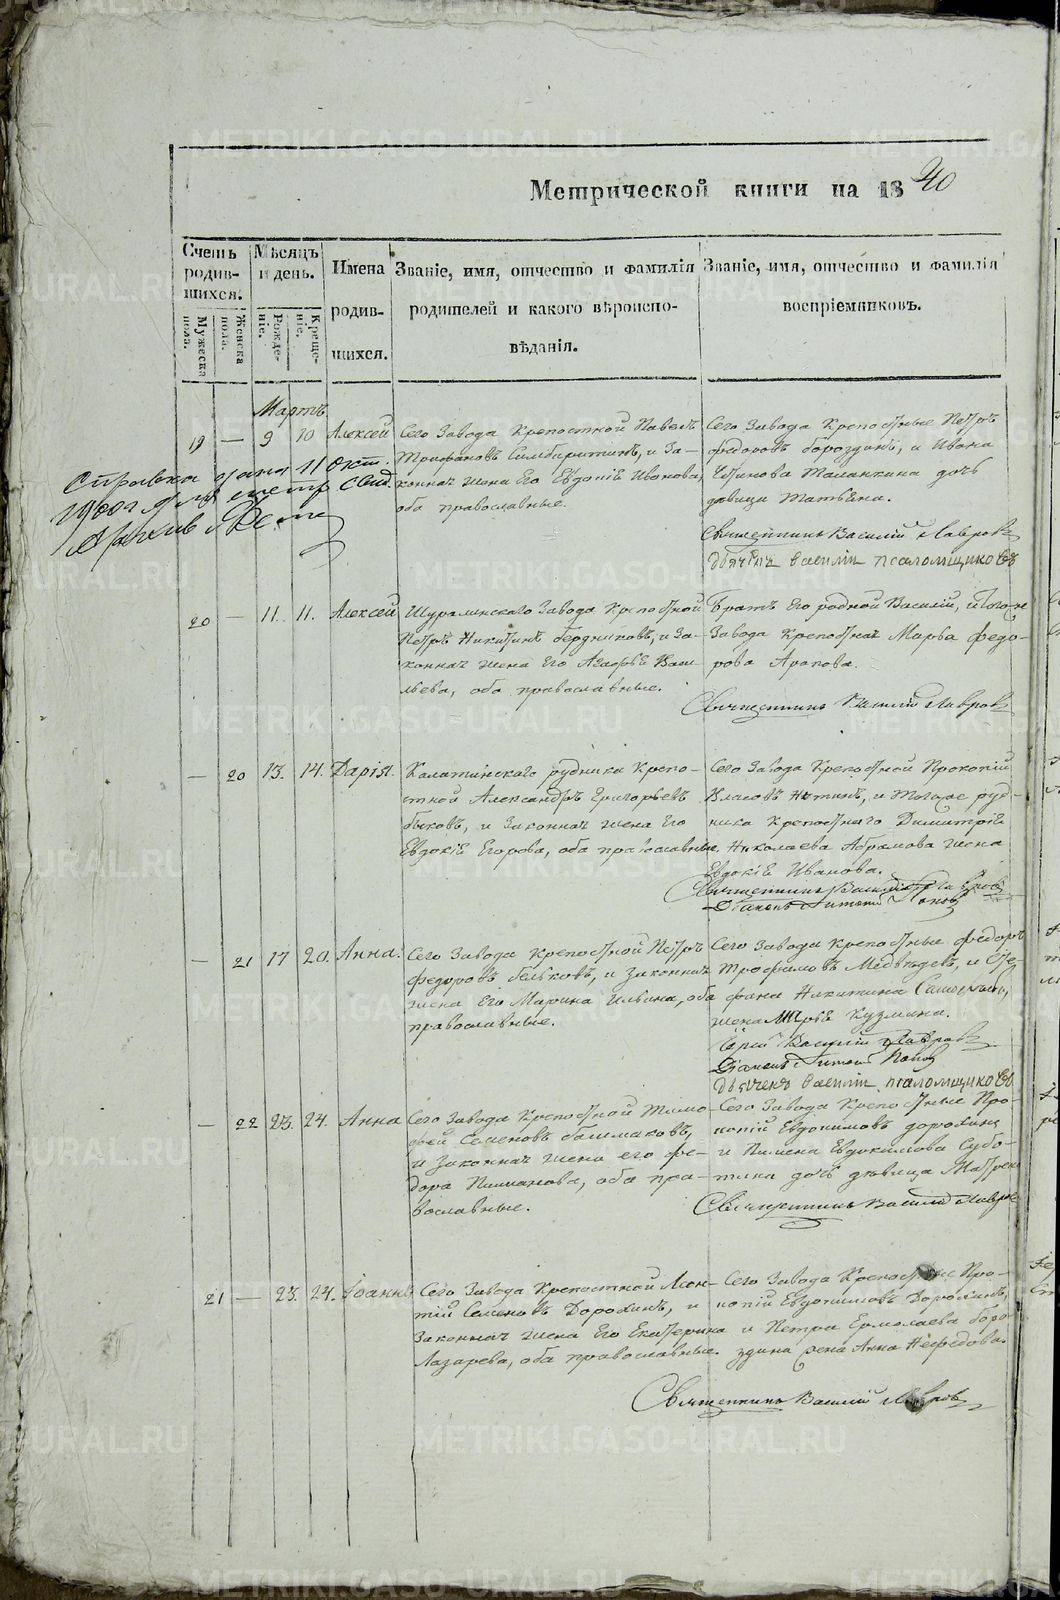 Метрической книги на 1840
Счетъ родившихся.
Мужеска пола.
Женска пола.
Мѣсяцъ и день.
Рожденіе.
Крещеніе.
Имена родившихся.
Званіе, имя, отчество и фамилія родителей и какого вѣроисповѣданія.
Званіе, имя, отчество и фамилія воспріемниковъ.
Мартъ
19 — 9 10 Алексей
Сего Завода Крепостной Павелъ
Трифановъ и За-
конная жена Его Евдокіе Иванова,
оба православные.
Сего Завода Крепостные Петръ
федоровъ бороздинъ, и Ивана
дочь
девица Татьяна.
Священникъ Василій Лавровъ
Дьячекъ василіи псаломщиковъ
Справка дана 11 окт.
Архив
20 — 11. 11. Алексей
Шуралинскаго Завода Крепостной
Петръ Никитинъ бердниковъ, и За-
конная жена Его Васи-
льева, оба православные.
Братъ Его родной Василій, и того
Завода Крепостная Марья Федо-
рова Арапова.
Священникъ Василій Лавровъ
— 20 13. 14. Дарія.
Калатинскаго рудника Крепо-
стной Александръ Григорьевъ
быковъ, и Законная жена Его
Евдокіе Егорова, оба православные.
Сего Завода Крепостной Прокопій
Власовъ и тогоже руд-
ника Крепостнаго Димитрія
Николаева Абрамова жена
Евдокіе Иванова.
Священникъ Василій Лавровъ
Діаконъ Поповъ
— 21 17 20. Анна.
Сего Завода Крепостной Петръ
Федоровъ бельковъ, и Законная
жена Его Марина Ильина, оба
православные.
Сего Завода Крепостные Федоръ
Трофимовъ Медведевъ, и Сте-
фана Никитина
жена Марье Кузмина.
Іерей Василій Лавровъ
Діаконъ Поповъ
Дьячекъ василіи псаломщиковъ
— 22 23. 24. Анна
Сего Завода Крепостной Тимо-
фей Семеновъ башмаковъ,
и Законная жена его Фе-
дора оба пра-
вославные.
Сего Завода Крепостные Про-
копій Евдокимовъ дорохинъ
и Пимена Евдокимова Субо-
тина дочь девица Матрена
Священникъ Василій Лавровъ
21 — 23. 24. Іоаннъ
Сего Завода Крепостной Леон-
тій Семеновъ Дорохинъ, и
Законная жена Его Екатерина
Лазарева, оба православные.
Сего Завода Крепостные Про-
копій Евдокимовъ Дорохинъ,
и Петра Ермолаева боро-
здина жена Анна Нефедова.
Священникъ Василій Лавровъ
METRIKI.GASO-URAL.RU